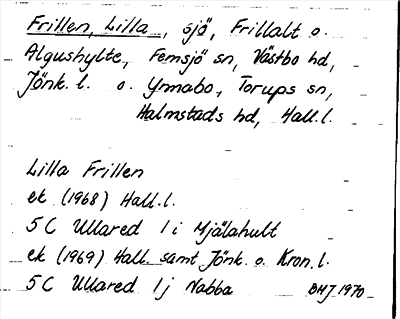 Frillen, Lilla, sjö, Frillalt o.
Algushylte, Femsjö sn, Västbo hd,
Jönk. l. o. Ynnabo, Torups sn,
Halmstads hd, Hall. l.
Lilla Frillen
ek (1968) Hall. l.
5 C Ullared 1 i Mjälahult
ek (1969) Hall. samt Jönk. o. Kron. l.
5 C Ullared 1 j Nabba BHJ 1970